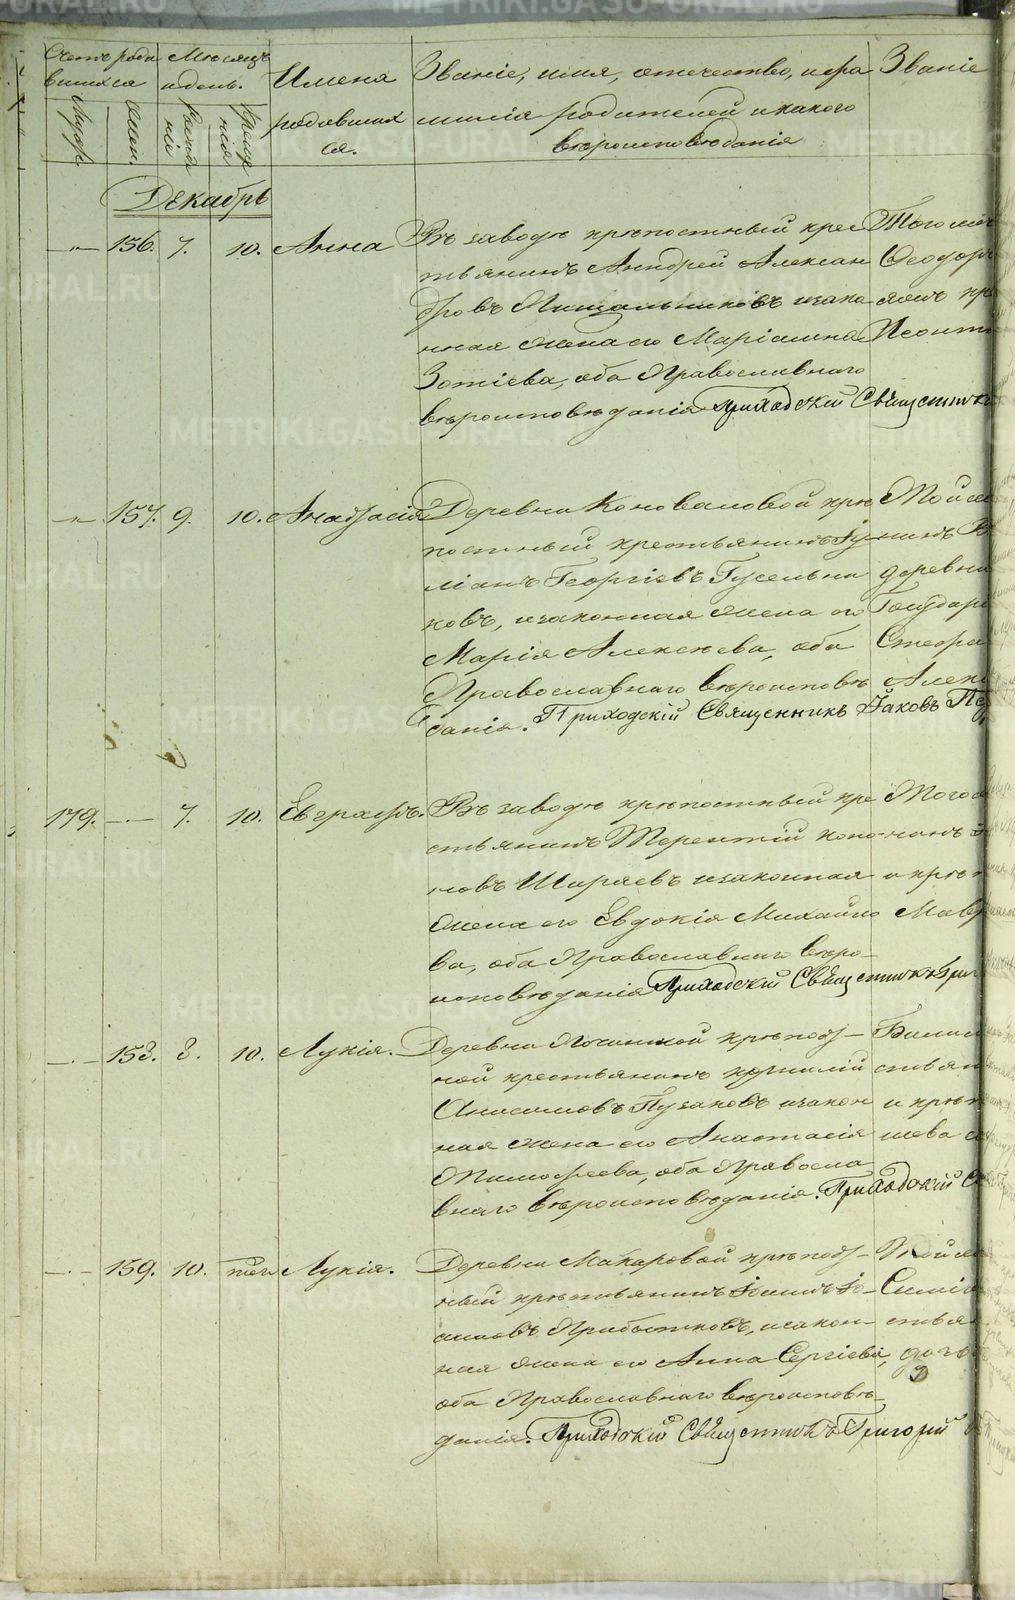 Счетъ родившихся
Мѣсяцъ и день.
Имена родившихся.
Званіе, имя, отчество, и фамилія родителей и какого вѣроисповѣданія
Званіе
Мужес.
Женс.
Рожденія
Крещенія
Декабрь
" 156. 7. 10. Анна
Въ заводѣ крѣпостный крес
тьянинъ Андрей Алексан
дровъ Пищальниковъ и зако
нная жена его Маріамна
Зотіева, оба Православнаго
вѣроисповѣданія. Приходскій Священникъ
Того же
Ѳеодоръ
" 157. 9. 10. Анастасія
Деревни Коноваловой крѣ
постный крестьянинъ Іу
ліанъ Георгіевъ Гусельни
ковъ, и законная жена его
Марія Алексѣева, оба
Православнаго вѣроисповѣ
данія. Приходскій Священникъ Іаковъ
Той же
деревни
Государ
Стефа
Алек
179. — 7. 10. Евграфъ.
Въ заводѣ крѣпостный кре
стьянинъ Терентій Коно
новъ Ширяевъ и законная
жена его Евдокія Михайло
ва, оба Православнаго вѣро-
исповѣданія. Приходскій Священникъ Григ
Того
и крѣ
Мав
— 158. 8. 10. Лукія.
Деревни крѣпост-
ной крестьянинъ Корнилій
Анисимовъ Пузаковъ и закон
ная жена его Анастасія
Тимофеева, оба Правосла
внаго вѣроисповѣданія. Приходскій
стьян
и крѣп
— 159. 10. Лукія.
Деревни Макаровой крѣпост-
ный крестьянинъ Іоаннъ Іо-
анновъ Прибытковъ, и закон-
ная жена его Анна Сергіева,
оба Православнаго вѣроисповѣ-
данія. Приходскій Священникъ Григорій
Той же
стья
дочь
METRIKI.GASO-URAL.RU